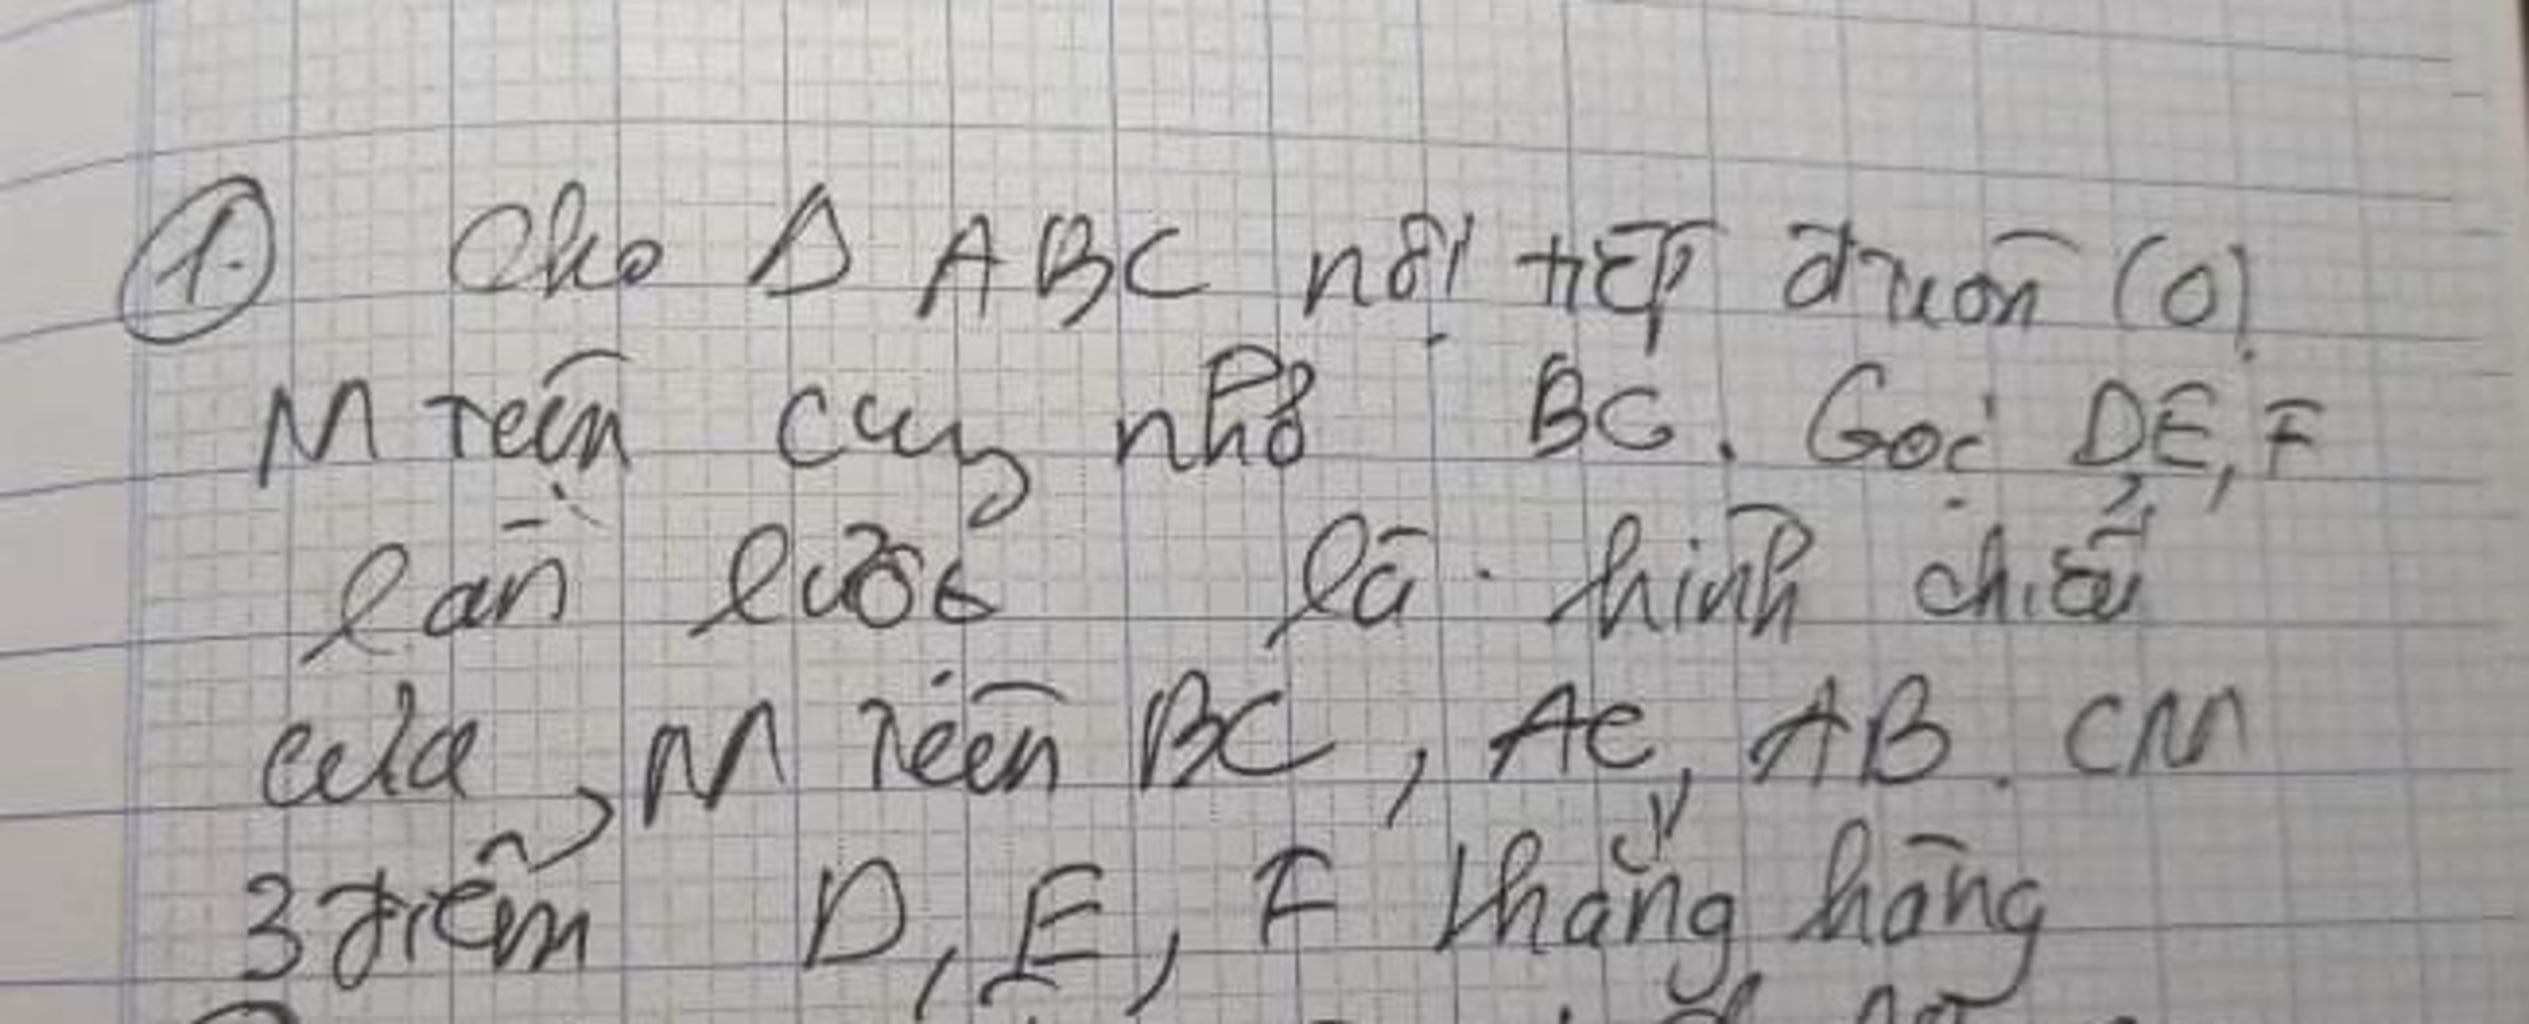 ① Cho Δ ABC nội tiếp đườn (O).
M trên cung nhỏ BC. Gọi D,E, F
lần lượt là hình chiếu
của M trên BC, AC, AB. CM
3 điểm D, E, F thẳng hàng